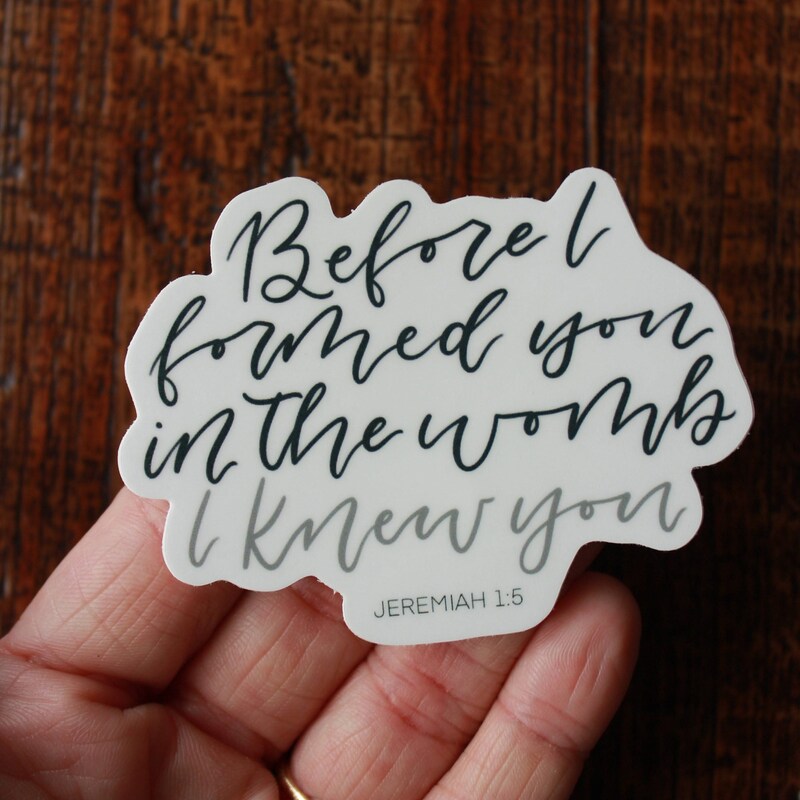 Before I
formed you
in the womb
I knew you
JEREMIAH 1:5